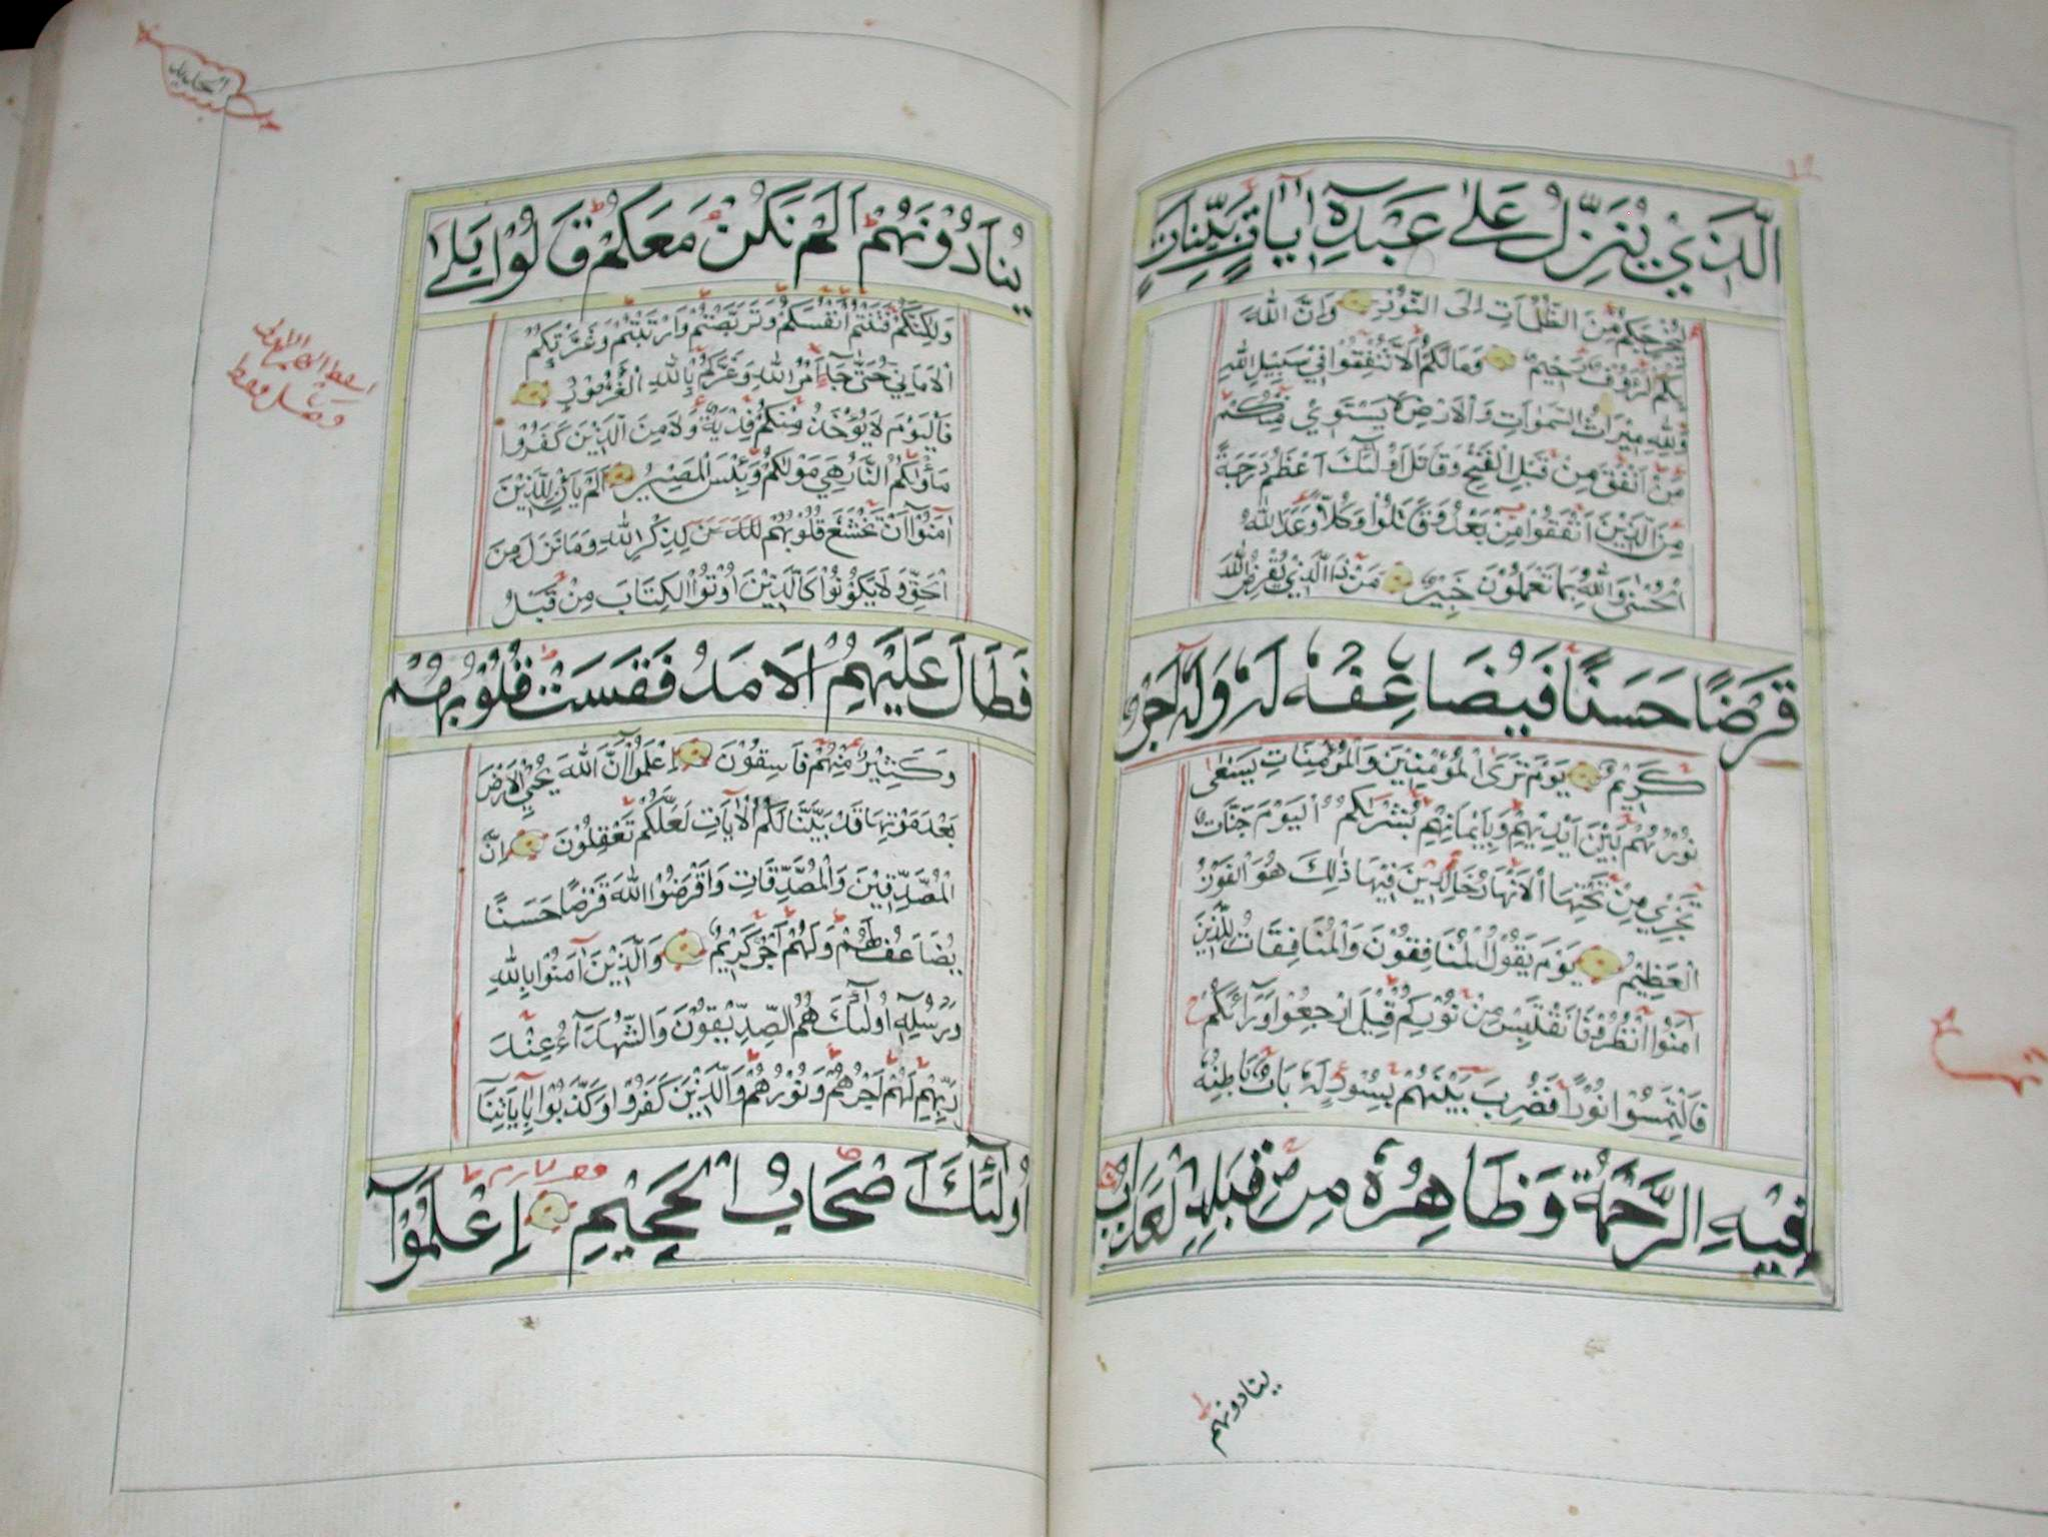 الَّذِيْ يُنَزِّلُ عَلٰى عَبْدِهٖ اٰيَاتٍ بَيِّنَاتٍ
لِيُخْرِجَكُمْ مِنَ الظُّلُمَاتِ اِلَى النُّوْرِ وَاِنَّ اللهَ
بِكُمْ لَرَؤُوْفٌ رَحِيْمٌ وَمَا لَكُمْ اَلَّا تُنْفِقُوْا فِيْ سَبِيْلِ اللهِ
وَلِلّٰهِ مِيْرَاثُ السَّمٰوَاتِ وَالْاَرْضِ لَا يَسْتَوِيْ مِنْكُمْ
مَنْ اَنْفَقَ مِنْ قَبْلِ الْفَتْحِ وَقَاتَلَ اُولٰٓئِكَ اَعْظَمُ دَرَجَةً
مِنَ الَّذِيْنَ اَنْفَقُوْا مِنْ بَعْدُ وَقَاتَلُوْا وَكُلًّا وَعَدَ اللهُ
الْحُسْنٰى وَاللهُ بِمَا تَعْمَلُوْنَ خَبِيْرٌ مَنْ ذَا الَّذِيْ يُقْرِضُ اللهَ
قَرْضًا حَسَنًا فَيُضَاعِفَهُ لَهُ وَلَهُ اَجْرٌ
كَرِيْمٌ يَوْمَ تَرَى الْمُؤْمِنِيْنَ وَالْمُؤْمِنَاتِ يَسْعٰى
نُوْرُهُمْ بَيْنَ اَيْدِيْهِمْ وَبِاَيْمَانِهِمْ بُشْرٰىكُمُ الْيَوْمَ جَنَّاتٌ
تَجْرِيْ مِنْ تَحْتِهَا الْاَنْهَارُ خَالِدِيْنَ فِيْهَا ذٰلِكَ هُوَ الْفَوْزُ
الْعَظِيْمُ يَوْمَ يَقُوْلُ الْمُنَافِقُوْنَ وَالْمُنَافِقَاتُ لِلَّذِيْنَ
اٰمَنُوْا انْظُرُوْنَا نَقْتَبِسْ مِنْ نُوْرِكُمْ قِيْلَ ارْجِعُوْا وَرَآئَكُمْ
فَالْتَمِسُوْا نُوْرًا فَضُرِبَ بَيْنَهُمْ بِسُوْرٍ لَهُ بَابٌ بَاطِنُهُ
فِيْهِ الرَّحْمَةُ وَظَاهِرُهُ مِنْ قِبَلِهِ الْعَذَابُ
ينادونهم
الحديد
يُنَادُوْنَهُمْ اَلَمْ نَكُنْ مَعَكُمْ قَالُوْا بَلٰى
وَلٰكِنَّكُمْ فَتَنْتُمْ اَنْفُسَكُمْ وَتَرَبَّصْتُمْ وَارْتَبْتُمْ وَغَرَّتْكُمُ
الْاَمَانِيُّ حَتّٰى جَآءَ اَمْرُ اللهِ وَغَرَّكُمْ بِاللهِ الْغَرُوْرُ
فَالْيَوْمَ لَا يُؤْخَذُ مِنْكُمْ فِدْيَةٌ وَلَا مِنَ الَّذِيْنَ كَفَرُوْا
مَأْوٰىكُمُ النَّارُ هِيَ مَوْلٰىكُمْ وَبِئْسَ الْمَصِيْرُ اَلَمْ يَاْنِ لِلَّذِيْنَ
اٰمَنُوْا اَنْ تَخْشَعَ قُلُوْبُهُمْ لِذِكْرِ اللهِ وَمَا نَزَلَ مِنَ
الْحَقِّ وَلَا يَكُوْنُوْا كَالَّذِيْنَ اُوْتُوا الْكِتَابَ مِنْ قَبْلُ
فَطَالَ عَلَيْهِمُ الْاَمَدُ فَقَسَتْ قُلُوْبُهُمْ
وَكَثِيْرٌ مِنْهُمْ فَاسِقُوْنَ اِعْلَمُوْٓا اَنَّ اللهَ يُحْيِي الْاَرْضَ
بَعْدَ مَوْتِهَا قَدْ بَيَّنَّا لَكُمُ الْاٰيَاتِ لَعَلَّكُمْ تَعْقِلُوْنَ اِنَّ
الْمُصَّدِّقِيْنَ وَالْمُصَّدِّقَاتِ وَاَقْرَضُوا اللهَ قَرْضًا حَسَنًا
يُضَاعَفُ لَهُمْ وَلَهُمْ اَجْرٌ كَرِيْمٌ وَالَّذِيْنَ اٰمَنُوْا بِاللهِ
وَرُسُلِهٖٓ اُولٰٓئِكَ هُمُ الصِّدِّيْقُوْنَ وَالشُّهَدَآءُ عِنْدَ
رَبِّهِمْ لَهُمْ اَجْرُهُمْ وَنُوْرُهُمْ وَالَّذِيْنَ كَفَرُوْا وَكَذَّبُوْا بِاٰيَاتِنَا
اُولٰٓئِكَ اَصْحَابُ الْجَحِيْمِ اِعْلَمُوْٓا